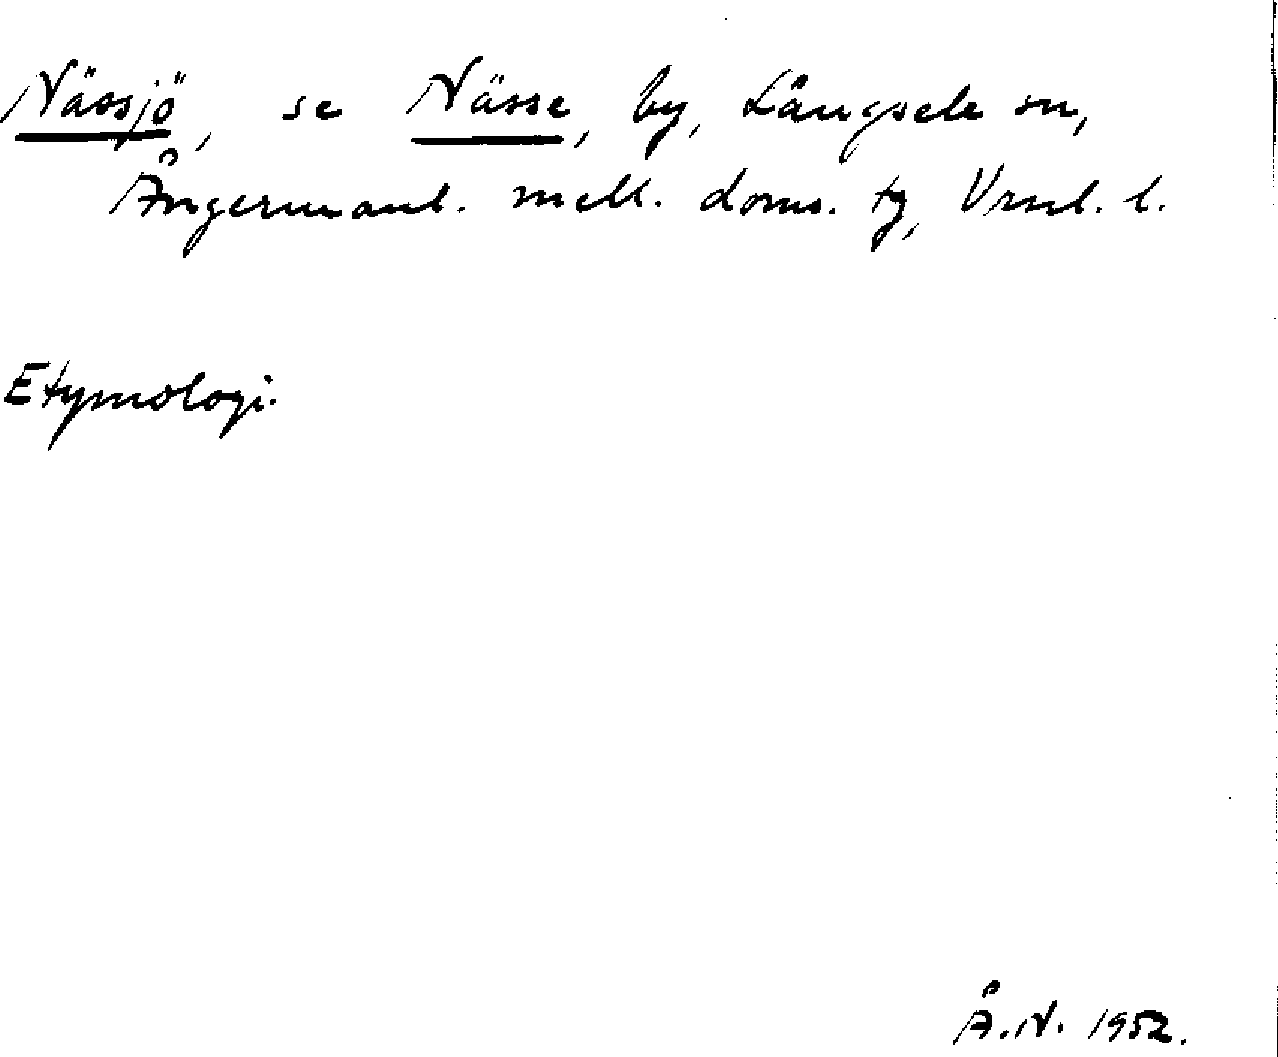 Nässjö, se Nässe, by, Långsele sn,
Ångermanl. mell. doms. tg, Vrnl. l.
Etymologi.
Å.N. 1952.